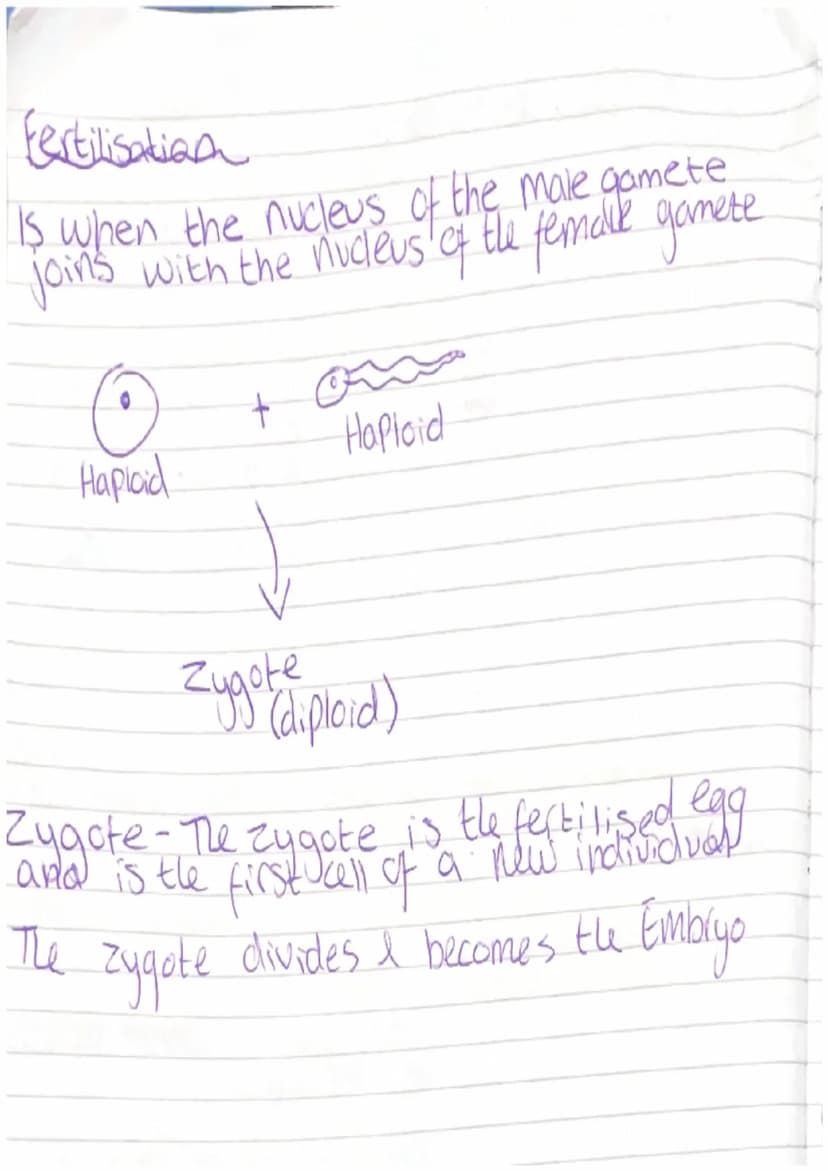 Fertilisation
Is when the nucleus of the male gamete
joins with the nucleus of the female gamete
+
Haploid
Haploid
Zygote
(diploid)
Zygote - The zygote is the fertilised egg
and is the first cell of a new individual
The zygote divides & becomes the Embryo